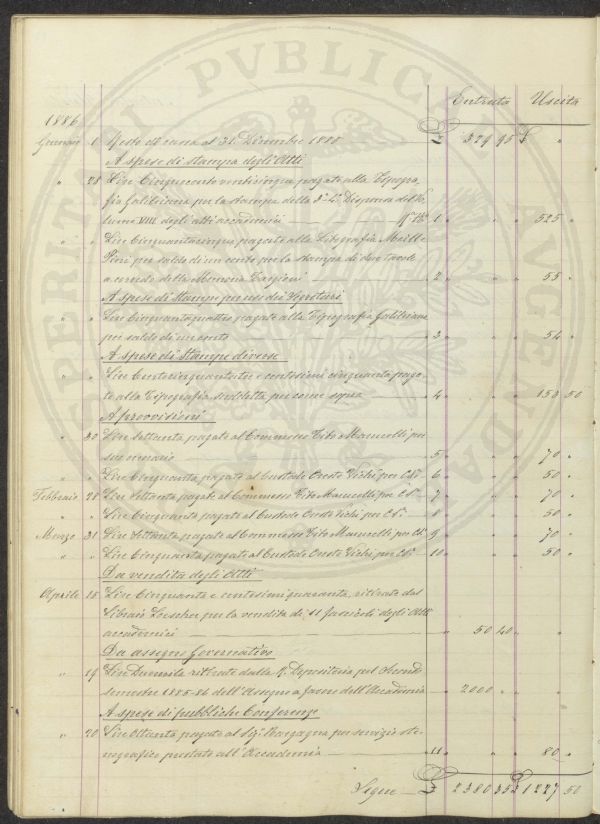 PROSPERITATI PVBLICAE AVGENDAE
Entrata Uscita
1886
Gennaio 1 Resto di cassa al 31 Dicembre 1885 — £ 329 95 £ "
A spese di stampa degli Atti
" 28 Lire Cinquecentoventicinque pagate alla Tipogra-
fia Galileiana per la stampa della 3ª-4ª Dispensa del Vo-
lume VIII degli atti accademici — 1 " 525 "
" " Lire Cinquantacinque pagate alla Litografia
Pini per saldo di un conto per la stampa di due tavole
a corredo della Memoria — 2 " 55 "
A spese di Stampe per uso dei Segretari
" " Lire Cinquantaquattro pagate alla Tipografia Galileiana
per saldo di un conto — 3 " 54 "
A spese di Stampe diverse
" " Lire Centocinquantatre e centesimi cinquanta paga-
te alla Tipografia suddetta per come sopra — 4 " 153 50
A provvisioni
" 30 Lire Settanta pagate al Commesso Tito Marucelli per
suo onorario — 5 " 70 "
" " Lire Cinquanta pagate al Custode Oreste Vichi per Cº — 6 " 50 "
Febbraio 28 Lire Settanta pagate al Commesso Tito Marucelli per Cº — 7 " 70 "
" " Lire Cinquanta pagate al Custode Oreste Vichi per Cº — 8 " 50 "
Marzo 31 Lire Settanta pagate al Commesso Tito Marucelli per Cº 9 " 70 "
" " Lire Cinquanta pagate al Custode Oreste Vichi per Cº 10 " 50 "
Da vendita degli Atti
Aprile 15 Lire Cinquanta e centesimi quaranta, ritirate dal
Libraio Loescher per la vendita di 11 fascicoli degli Atti
accademici — " 50 40 " "
Da assegno governativo
" 19 Lire Duemila ritirate dalla R. Depositeria pel secondo
semestre 1885-86 dell'Assegno a favore dell'Accademia — 2000 " " "
A spese di pubbliche Conferenze
" 20 Lire Ottanta pagate al Sig. Bargagna per servizio ste-
nografico prestato all'Accademia — 11 " 80 "
Segue — £ 2380 35 £ 1227 50